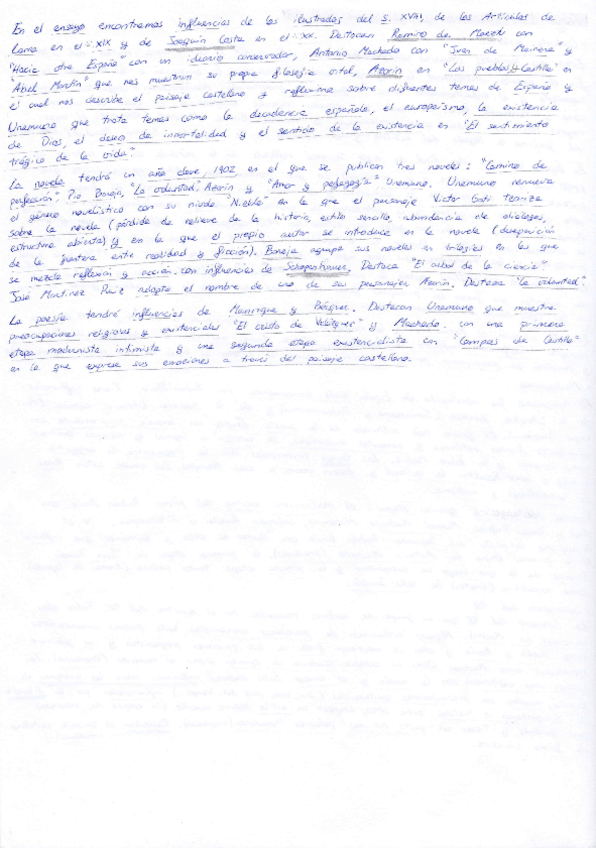 En el ensayo encontramos influencias de los ilustrados del S. XVIII, de los Artículos de
Larra en el S. XIX y de Joaquín Costa en el S. XX. Destacan Ramiro de Maeztu con
"Hacia otra España" con un ideario conservador, Antonio Machado con "Juan de Mairena" y
"Abel Martín" que nos muestran su propia filosofía vital, Azorín en "Los pueblos y Castilla" en
el cual nos describe el paisaje castellano y reflexiona sobre diferentes temas de España y
Unamuno que trata temas como la decadencia española, el europeísmo, la existencia
de Dios, el deseo de inmortalidad y el sentido de la existencia en "El sentimiento
trágico de la vida".
La novela tendrá un año clave, 1902 en el que se publican tres novelas: "Camino de
perfección", Pío Baroja, "La voluntad", Azorín y "Amor y pedagogía" Unamuno. Unamuno renueva
el género novelístico con su nivola "Niebla" en la que el personaje Victor Goti teoriza
sobre la novela (pérdida de relieve de la historia, estilo sencillo, abundancia de diálogos,
estructura abierta) y en la que el propio autor se introduce en la novela (desaparición
de la frontera entre realidad y ficción). Baroja agrupa sus novelas en trilogías en las que
se mezcla reflexión y acción con influencias de Schopenhauer. Destaca "El árbol de la ciencia"
José Martínez Ruiz adopta el nombre de uno de sus personajes Azorín. Destaca "La voluntad."
La poesía tendrá influencias de Manrique y Bécquer. Destacan Unamuno que muestra
preocupaciones religiosas y existenciales "El cristo de Velázquez" y Machado con una primera
etapa modernista intimista y una segunda etapa existencialista con "Campos de Castilla"
en la que expresa sus emociones a través del paisaje castellano.